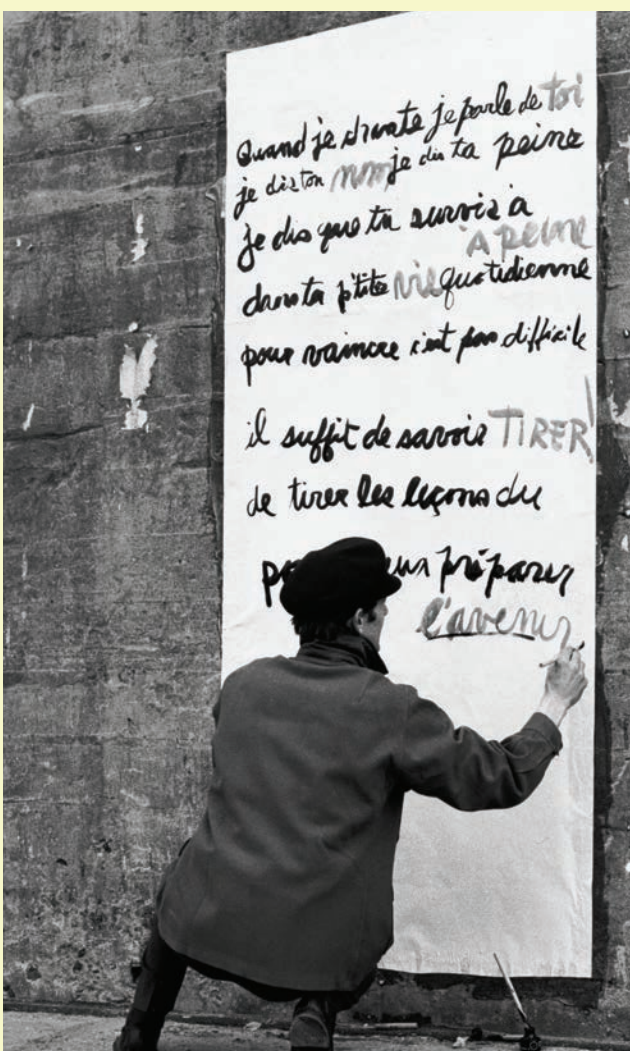 Quand je chante je parle de toi
je dis ton nom je dis ta peine
je dis que tu survis à
à peine
dans ta p'tite vie quotidienne
pour vaincre c'est pas difficile
il suffit de savoir TIRER!
de tirer les leçons du
préparer
l'avenir